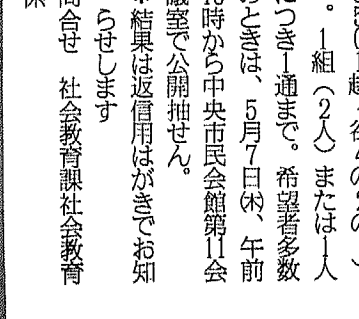 。1組(2人)または1人
につき1通まで。希望者多数
のときは、5月7日㈭、午前
時から中央市民会館第11会
議室で公開抽せん。
結果は返信用はがきでお知
らせします
問合せ 社会教育課社会教育